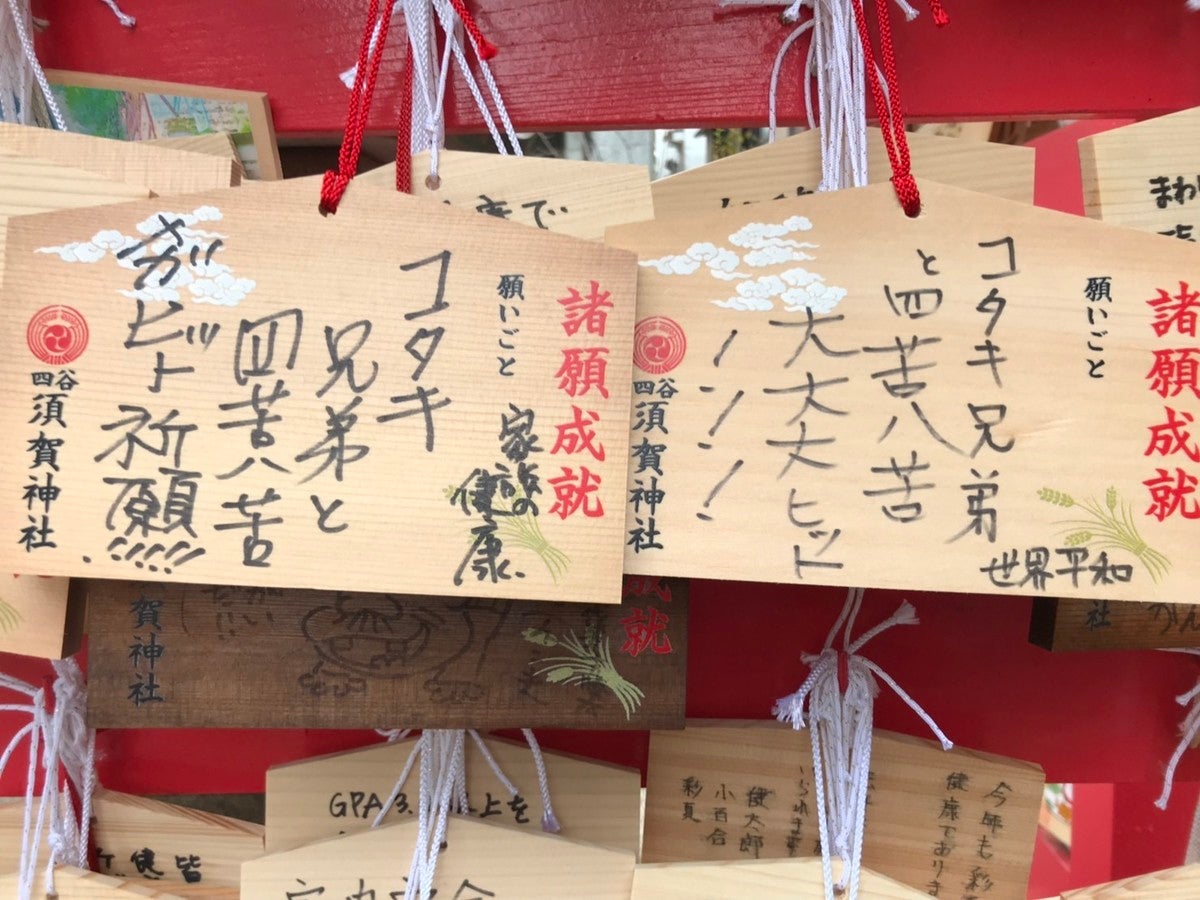 諸願成就
願いごと
コタキ
兄弟と
四苦八苦
メガヒット祈願!!!!!
家族の
健康.
四谷
須賀神社
諸願成就
願いごと
コタキ兄弟
と四苦八苦
大大大ヒット
世界平和
四谷
須賀神社
康で
まわ
成就
賀神社
社
GPA3.
上を
今年も彩
健康であります
健太郎
小百合
彩夏
健
皆